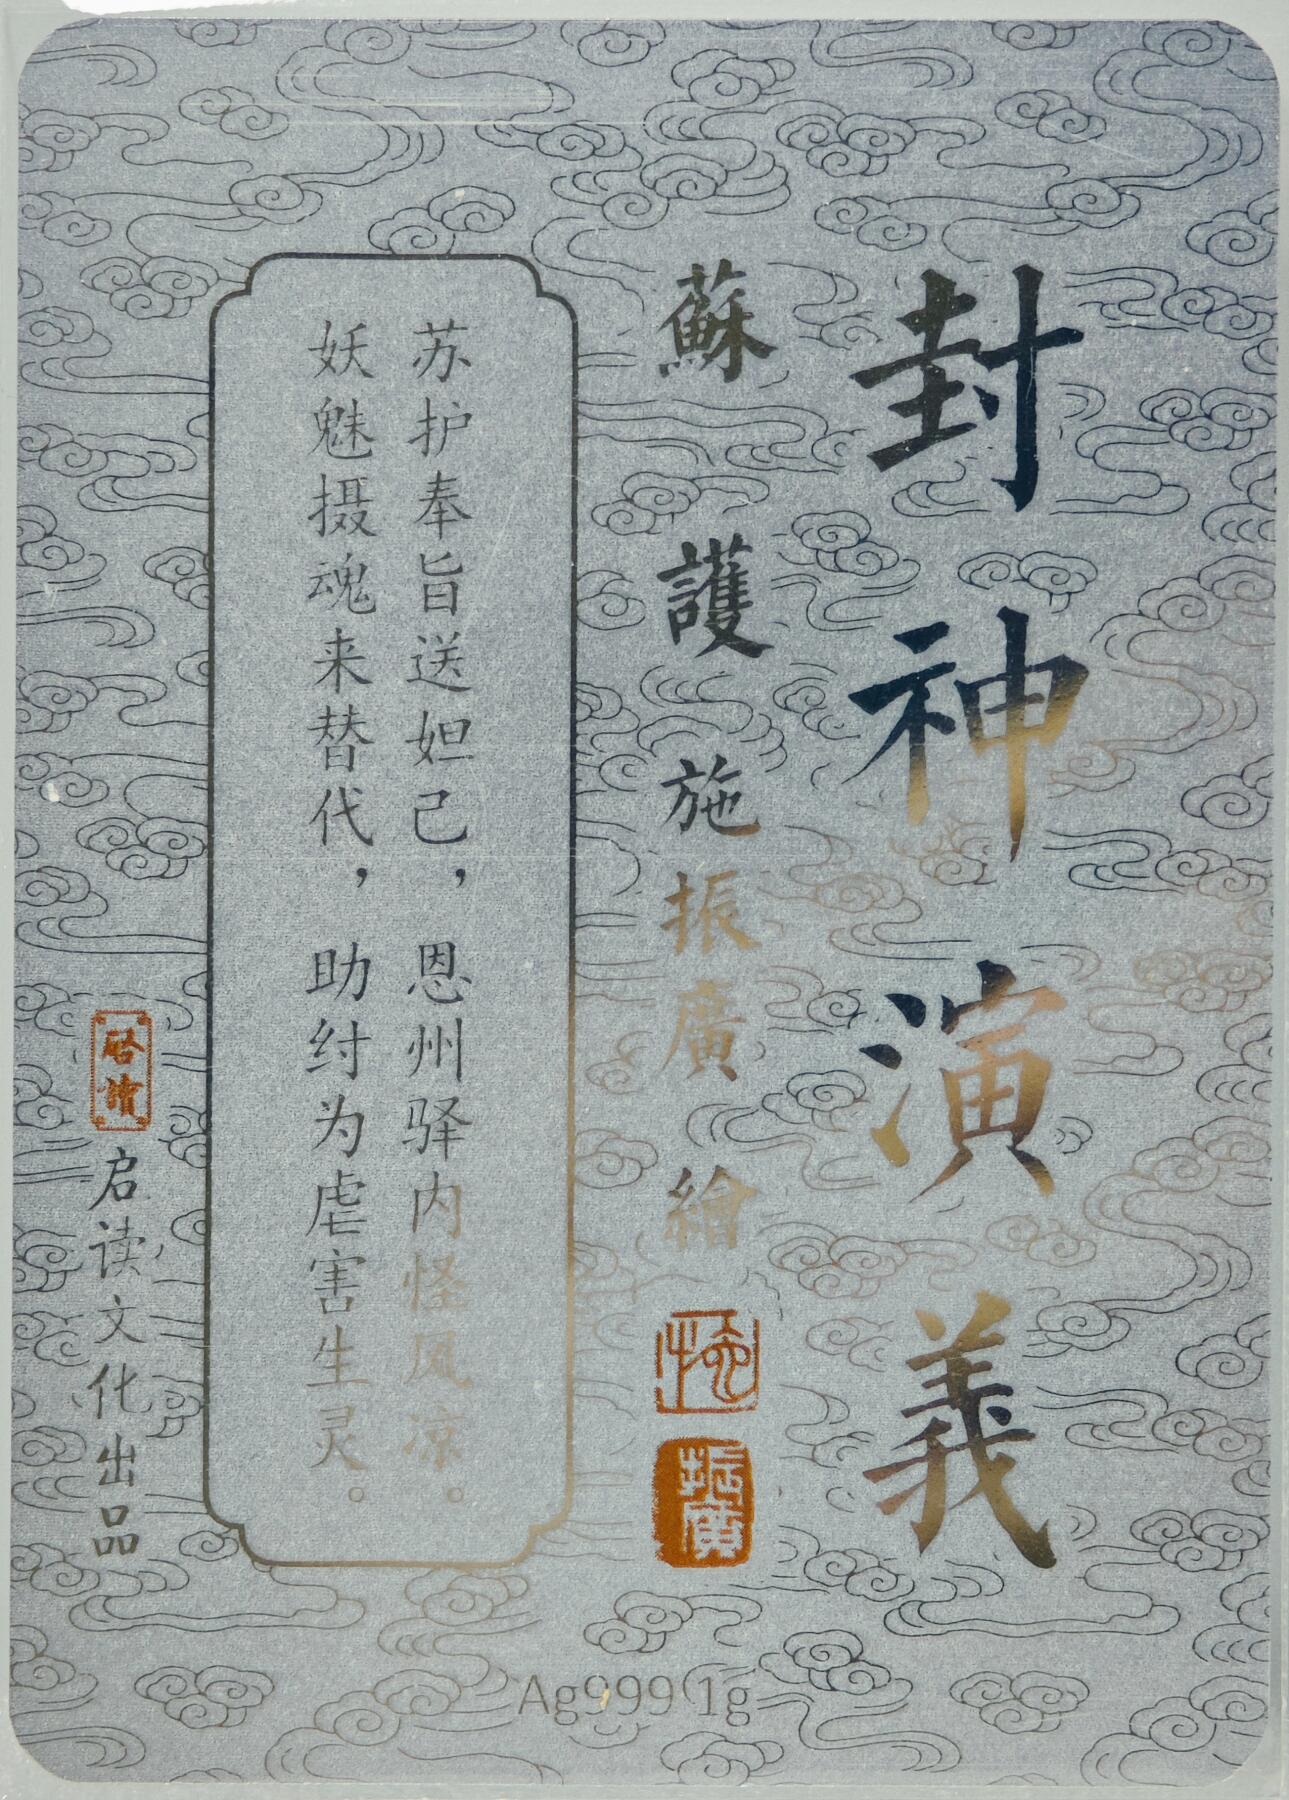 封神演義
蘇護 施振廣 繪
振廣
苏护奉旨送妲己，恩州驿内怪风凉。
妖魅摄魂来替代，助纣为虐害生灵。
啓讀
启读文化出品
Ag999 1g